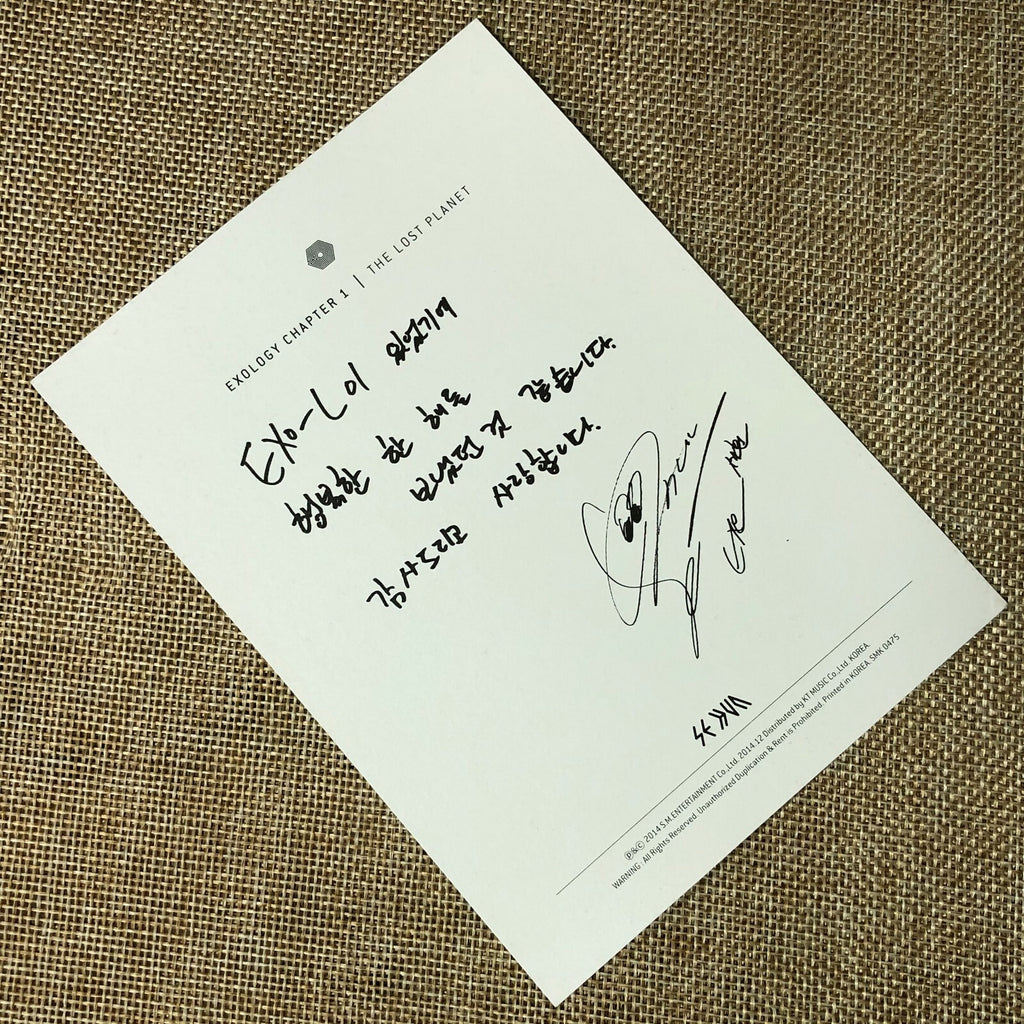 EXOLOGY CHAPTER 1 | THE LOST PLANET
EXO-L이 있었기에
행복한 한 해를
보냈던 것 같습니다.
감사드리고 사랑합니다.
℗&© 2014 S.M.ENTERTAINMENT Co.,Ltd. 2014.12 Distributed by KT MUSIC Co.,Ltd. KOREA.
WARNING : All Rights Reserved. Unauthorized Duplication & Rent is Prohibited. Printed in KOREA. SMK 0475